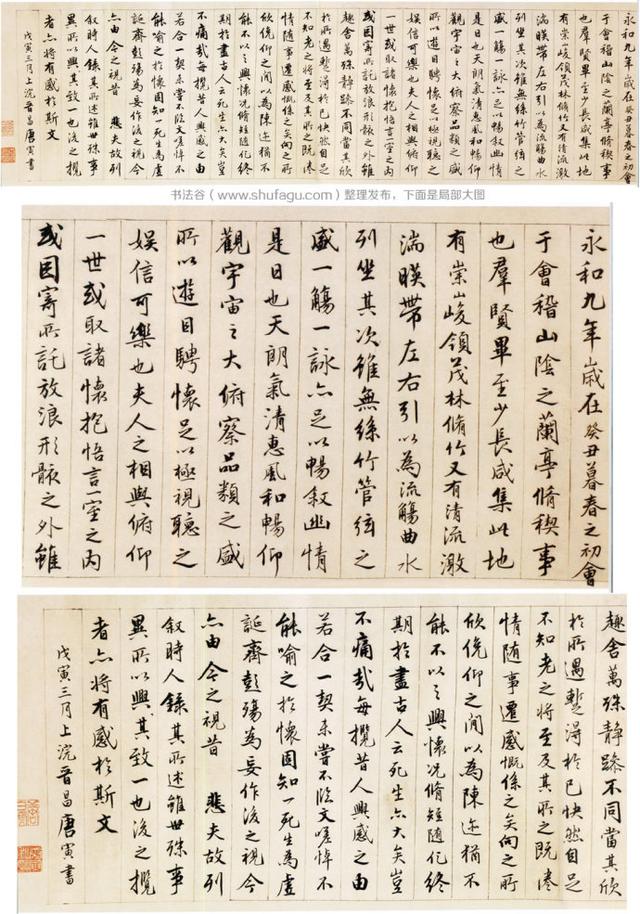 永和九年歲在癸丑暮春之初會
于會稽山陰之蘭亭脩稧事
也羣賢畢至少長咸集此地
有崇山峻領茂林脩竹又有清流激
湍暎帶左右引以為流觴曲水
列坐其次雖無絲竹管弦之
盛一觴一詠亦足以暢敘幽情
是日也天朗氣清惠風和暢仰
觀宇宙之大俯察品類之盛
所以遊目騁懷足以極視聽之
娛信可樂也夫人之相與俯仰
一世或取諸懷抱悟言一室之內
或因寄所託放浪形骸之外雖
趣舍萬殊靜躁不同當其欣
於所遇蹔得於己快然自足
不知老之將至及其所之既惓
情隨事遷感慨係之矣向之所
欣俛仰之閒以為陳迹猶不
能不以之興懷況脩短隨化終
期於盡古人云死生亦大矣豈
不痛哉每攬昔人興感之由
若合一契未嘗不臨文嗟悼不
能喻之於懷固知一死生為虛
誕齊彭殤為妄作後之視今
亦由今之視昔 悲夫故列
敘時人錄其所述雖世殊事
異所以興其致一也後之攬
者亦將有感於斯文
戊寅三月上浣晉昌唐寅書
书法谷（www.shufagu.com）整理发布，下面是局部大图
永和九年歲在癸丑暮春之初會
于會稽山陰之蘭亭脩稧事
也羣賢畢至少長咸集此地
有崇山峻領茂林脩竹又有清流激
湍暎帶左右引以為流觴曲水
列坐其次雖無絲竹管弦之
盛一觴一詠亦足以暢敘幽情
是日也天朗氣清惠風和暢仰
觀宇宙之大俯察品類之盛
所以遊目騁懷足以極視聽之
娛信可樂也夫人之相與俯仰
一世或取諸懷抱悟言一室之內
或因寄所託放浪形骸之外雖
趣舍萬殊靜躁不同當其欣
於所遇蹔得於己快然自足
不知老之將至及其所之既惓
情隨事遷感慨係之矣向之所
欣俛仰之閒以為陳迹猶不
能不以之興懷況脩短隨化終
期於盡古人云死生亦大矣豈
不痛哉每攬昔人興感之由
若合一契未嘗不臨文嗟悼不
能喻之於懷固知一死生為虛
誕齊彭殤為妄作後之視今
亦由今之視昔 悲夫故列
敘時人錄其所述雖世殊事
異所以興其致一也後之攬
者亦將有感於斯文
戊寅三月上浣晉昌唐寅書